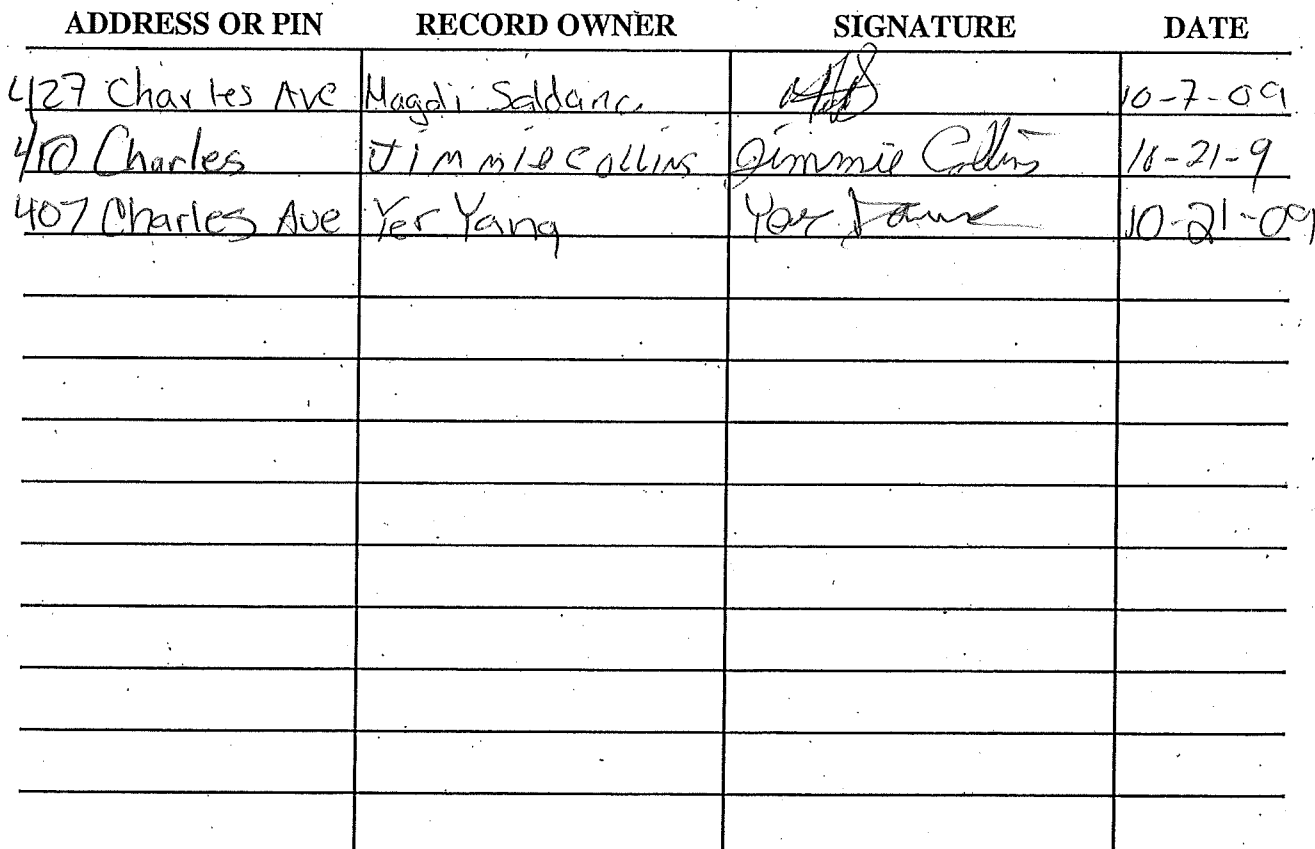 ADDRESS OR PIN RECORD OWNER SIGNATURE DATE
427 Charles Ave Magdi Saldana 10-7-09
410 Charles Jimmie Collins Jimmie Collins 10-21-9
407 Charles Ave Yer Yang Yer Yang 10-21-09